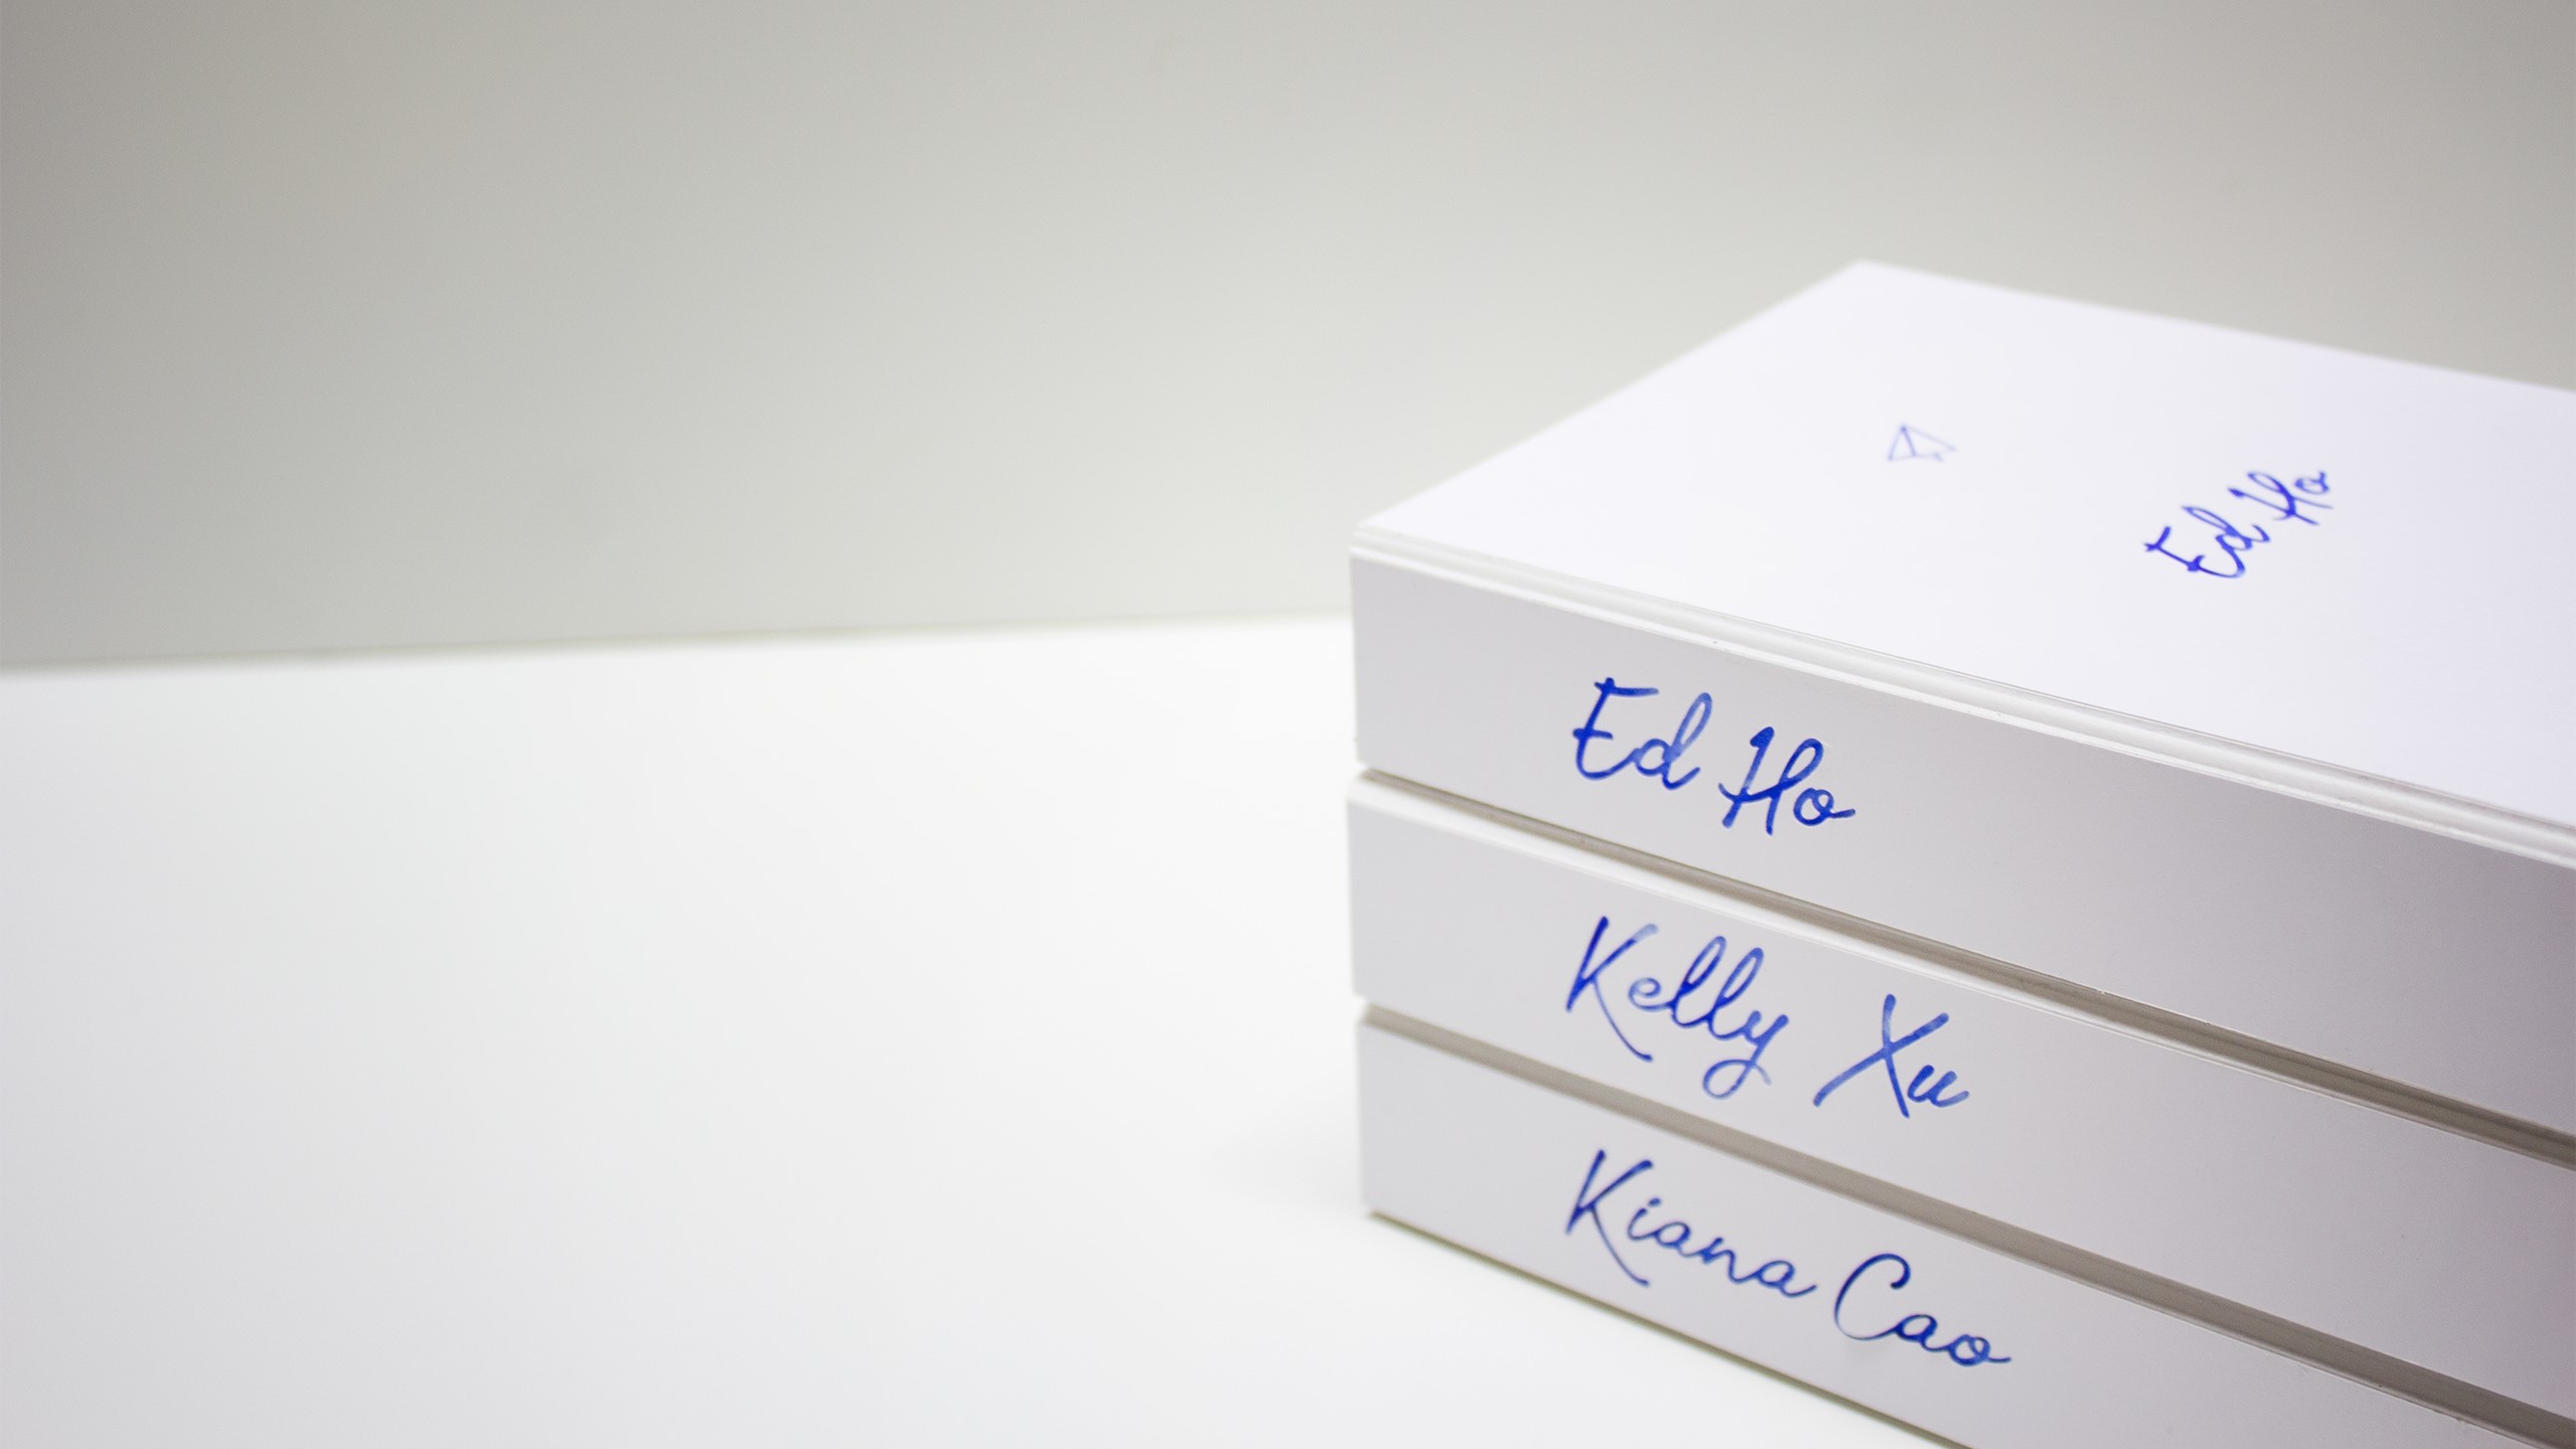 Ed Ho
Ed Ho
Kelly Xu
Kiana Cao